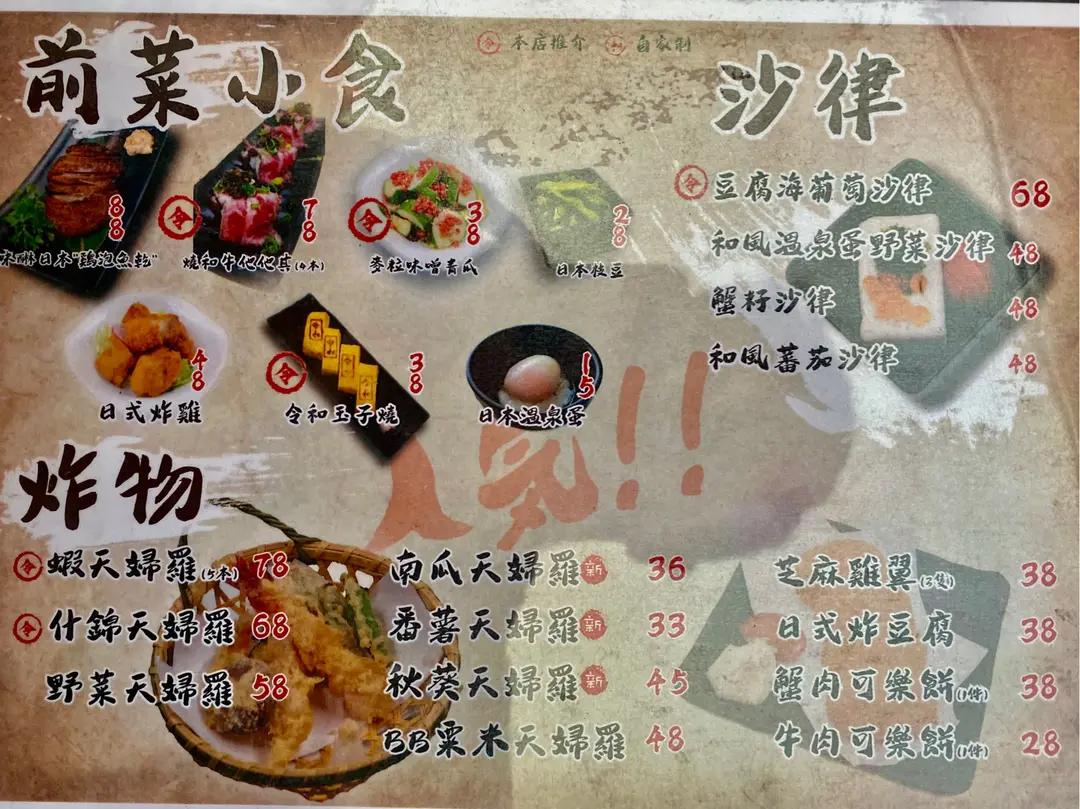 前菜小食
令 本店推介 和 自家制
沙律
88
令 78
令 38
28
味醂日本"鶏泡魚乾"
燒和牛他他其(4本)
麥粒味噌青瓜
日本枝豆
令 豆腐海葡萄沙律 68
和風溫泉蛋野菜沙律 48
蟹籽沙律 48
和風蕃茄沙律 48
48
令 38
15
日式炸雞
令和玉子燒
日本溫泉蛋
人気!!
炸物
令 蝦天婦羅(5本) 78
令 什錦天婦羅 68
野菜天婦羅 58
南瓜天婦羅 新 36
番薯天婦羅 新 33
秋葵天婦羅 新 45
BB粟米天婦羅 48
芝麻雞翼(3隻) 38
日式炸豆腐 38
蟹肉可樂餅(1件) 38
牛肉可樂餅(1件) 28